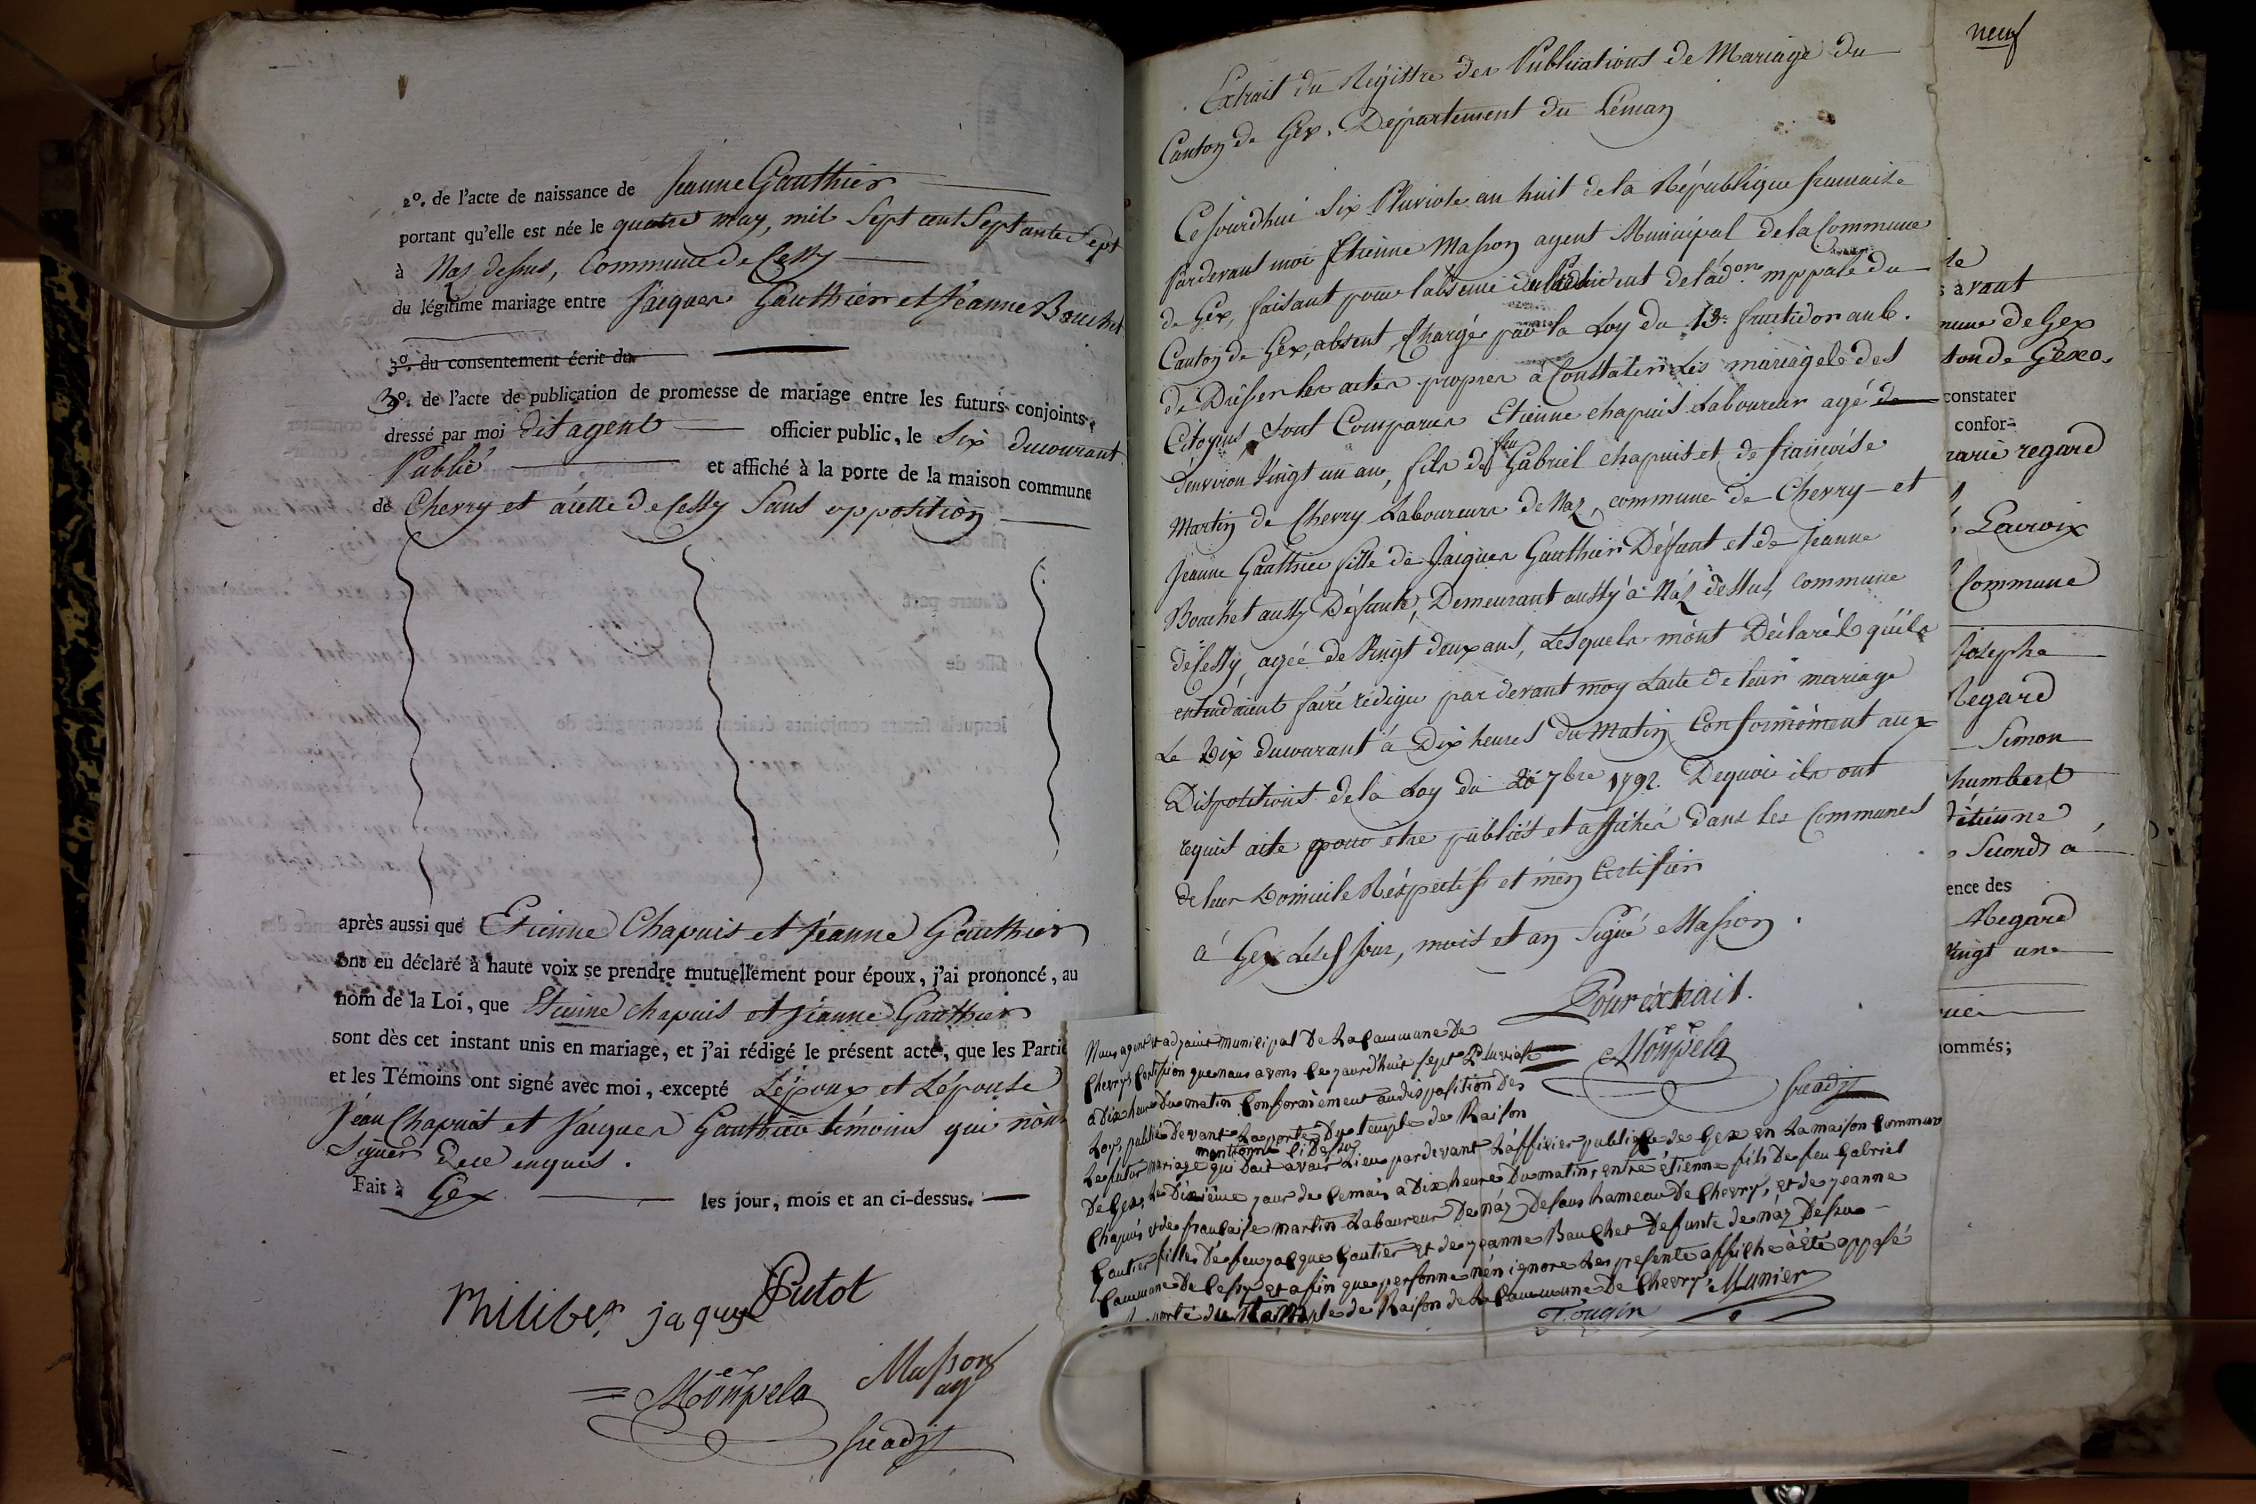 2º. de l'acte de naissance de Jeanne Gauthier
portant qu'elle est née le quatre may, mil sept cent septante sept
à Naz dessus, Commune de Cessy
du légitime mariage entre Jaiques Gauthier et Jéanne Bouchet
3º. du consentement écrit du
3º. de l'acte de publication de promesse de mariage entre les futurs conjoints,
dressé par moi dit agent officier public, le Six du courant
Publié et affiché à la porte de la maison commune
de Chevry et à celle de Cessy Sans opposition
après aussi que Etienne Chapuis et Jéanne Gauthier
ont eu déclaré à haute voix se prendre mutuellement pour époux, j'ai prononcé, au
nom de la Loi, que Etienne Chapuis et Jéanne Gauthier
sont dès cet instant unis en mariage, et j'ai rédigé le présent acte, que les Partie
et les Témoins ont signé avec moi, excepté L'époux et L'épouse
Jéan Chapuis et Jaiques Gauthier témoins qui n'ont
Signer de ce enquis.
Fait à Gex les jour, mois et an ci-dessus.
Putot
jaques
Masson
ag
Moupela
Extrait du Régistre des Publications de Mariage du
Canton de Gex. Département du Léman
Ce jourdhui Six Pluviose an huit de la République francaise
Pardevant moi Etienne Masson agent Municipal de la Commune
de Gex, faisant pour l'absence du Président de l'ad.on mppale du
Canton de Gex, absent, Chargé par la Loy du 13. fructidor an 6.
de Dresser les actes propres à Constater Les mariages des
Citoyens, Sont Comparus Etienne chapuis Laboureur agé de
d'environ Vingt un an, fils de feu Gabriel chapuis et de francoise
Martin de Chevry Laboureurs de Naz, commune de Chevry et
Jeanne Gauthier fille de Jaiques Gauthier Défunt et de Jeanne
Bouchet aussy Défunte, Demeurant aussy à Naz dessus, commune
de Cessy, agée de Vingt deux ans, Lesquels m'ont Déclarés qu'ils
entendoient faire rédiger par devant moy L'acte de leur mariage
Le Dix du courant à Dix heures du Matin Conformément aux
Dispositions de la Loy du 20 7bre 1792. Dequoi ils ont
requis acte pour etre publiés et affichés dans les Communes
de leur Domicile Réspectifs et m'en Certifier
à Gex Lesd jour, mois et an Signé Masson.
Pour éxtrait.
Moupela
Nous agent et adjoint municipal De La Commune De
Chevry Certifion que nous avons Ce jourdhuit sept Pluviose
a Dix heure Du matin Conformement au disposition Des
Loy, publié Devant La porte Du temple de Raison
mentionné Ci Dessus
Le futur mariage qui Doit avoir Lieu par devant L'officier publique de Gex en La maison Commune
De Gex, Le Dixieme jour de Ce mois a Dix heure Du matin, entre étienne fils De feu Gabriel
Chapuis et de francaise martin Laboureur De náz Desous hameau De Chevry, et de jeanne
Gautier fille De feu jacque Gautier et de jeanne Bauchet Defunte de náz Dessu
Commune De Cessy et afin que personne n'en ignore Les presente affiche à été apposé
porte du temple de Raison de La Commune De Chevry, Munier
Fougin
neuf
s avant
mune de Gex
ton de Gex
constater
confor-
marie regard
Lacroix
Commune
Josephe
Regard
Simon
humbert
étienne
Seconds à
ence des
Regard
Vingt une
nommés;